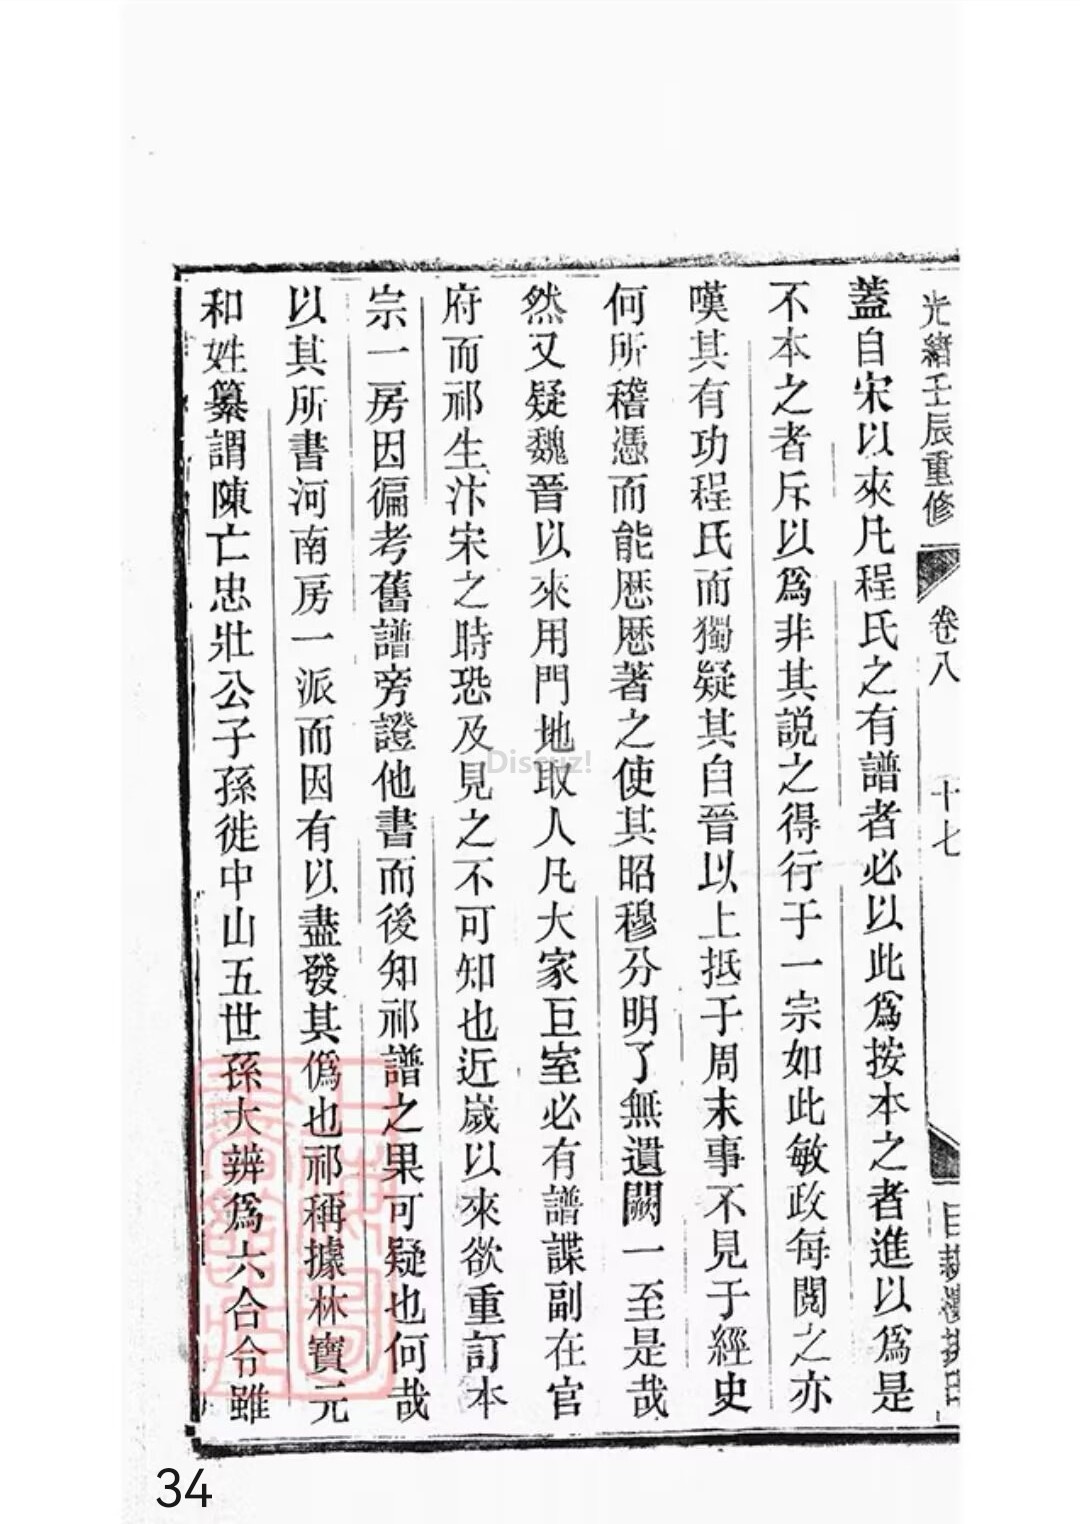 光緒壬辰重修
卷八
十七
蓋自宋以來凡程氏之有譜者必以此爲按本之者進以爲是
不本之者斥以爲非其説之得行于一宗如此敏政每閲之亦
嘆其有功程氏而獨疑其自晉以上抵于周末事不見于經史
何所稽憑而能歷歷著之使其昭穆分明了無遺闕一至是哉
然又疑魏晉以來用門地取人凡大家巨室必有譜諜副在官
府而祁生汴宋之時恐及見之不可知也近嵗以來欲重訂本
宗一房因徧考舊譜旁證他書而後知祁譜之果可疑也何哉
以其所書河南房一派而因有以盡發其僞也祁稱據林寳元
和姓纂謂陳亡忠壯公子孫徙中山五世孫大辨爲六合令雖
Discuz!
34